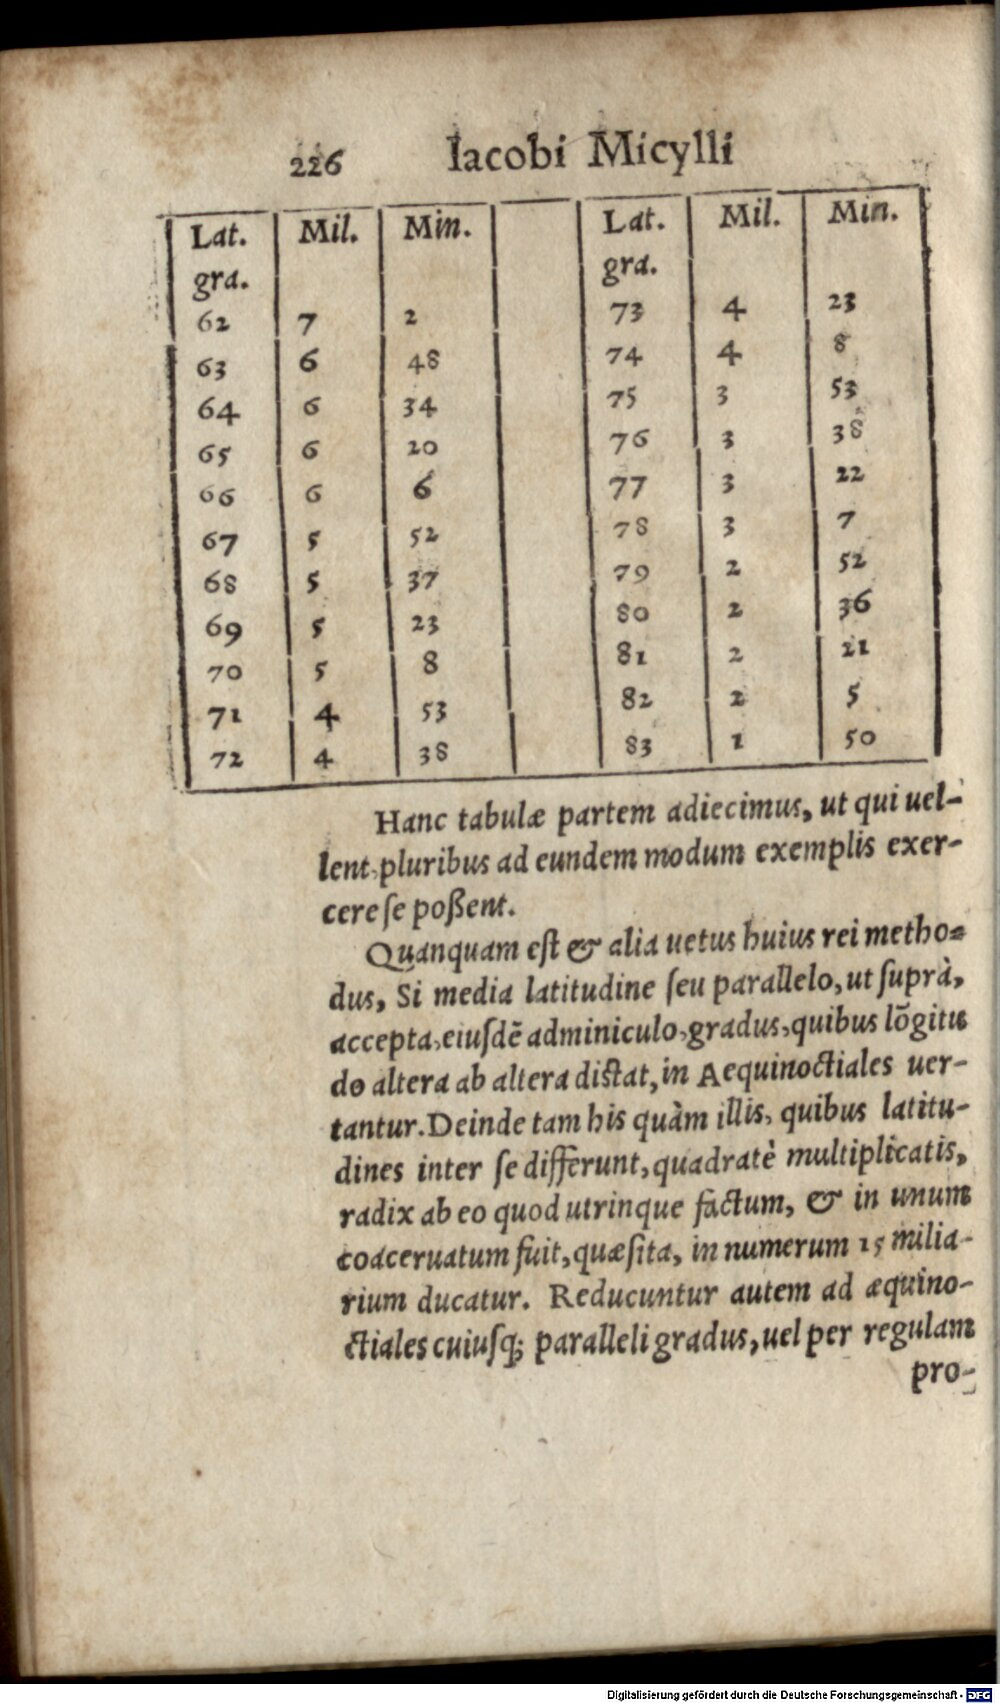 226 Iacobi Micylli
Lat. Mil. Min. Lat. Mil. Min.
gra. gra.
62 7 2 73 4 23
63 6 48 74 4 8
64 6 34 75 3 53
65 6 20 76 3 38
66 6 6 77 3 22
67 5 52 78 3 7
68 5 37 79 2 52
69 5 23 80 2 36
70 5 8 81 2 21
71 4 53 82 2 5
72 4 38 83 1 50
Hanc tabulæ partem adiecimus, ut qui uel-
lent, pluribus ad eundem modum exemplis exer-
cere ſe poßent.
Quanquam eſt & alia uetus huius rei metho-
dus, Si media latitudine ſeu parallelo, ut ſuprà,
accepta, eiuſdẽ adminiculo, gradus, quibus lõgitu
do altera ab altera diſtat, in Aequinoctiales uer-
tantur. Deinde tam his quàm illis, quibus latitu-
dines inter ſe differunt, quadratè multiplicatis,
radix ab eo quod utrinque factum, & in unum
coaceruatum fuit, quæſita, in numerum 15 milia-
rium ducatur. Reducuntur autem ad æquino-
ctiales cuiuſq; paralleli gradus, uel per regulam
pro-
Digitalisierung gefördert durch die Deutsche Forschungsgemeinschaft - DFG